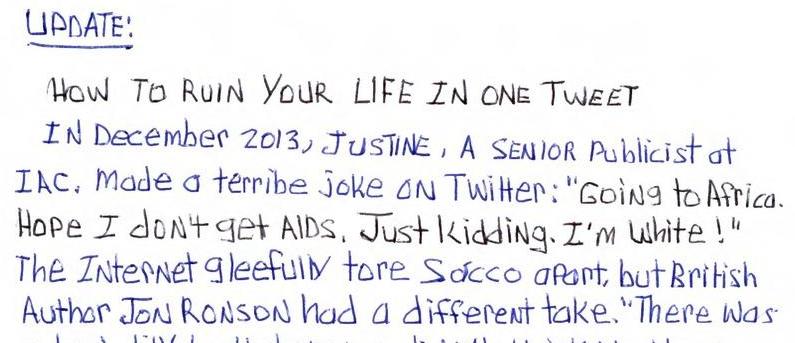 UPDATE:
HOW TO RUIN YOUR LIFE IN ONE TWEET
IN December 2013, JUSTINE, A SENIOR Publicist at
IAC, Made a terribe joke ON Twitter: "Going to Africa.
Hope I don't get AIDS. Just kidding. I'm white!"
The Internet gleefully tore Sacco apart, but British
Author JON RONSON had a different take. "There was